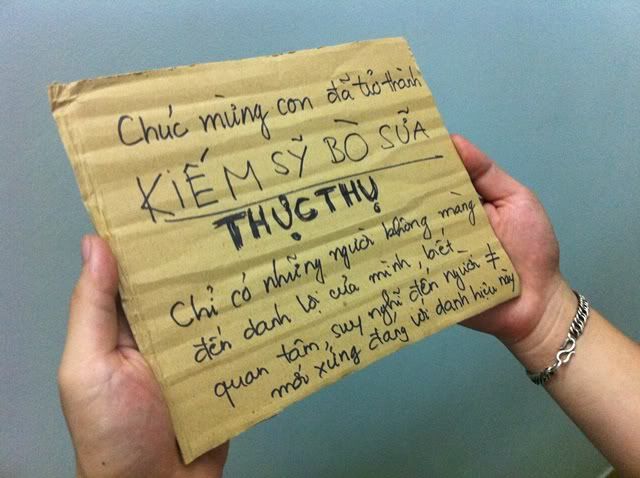 Chúc mừng con đã trở thành
KIẾM SỸ BÒ SỮA
THỰC THỤ
Chỉ có những người không màng
đến danh lợi của mình, biết
quan tâm, suy nghĩ đến người ≠
mới xứng đáng với danh hiệu này